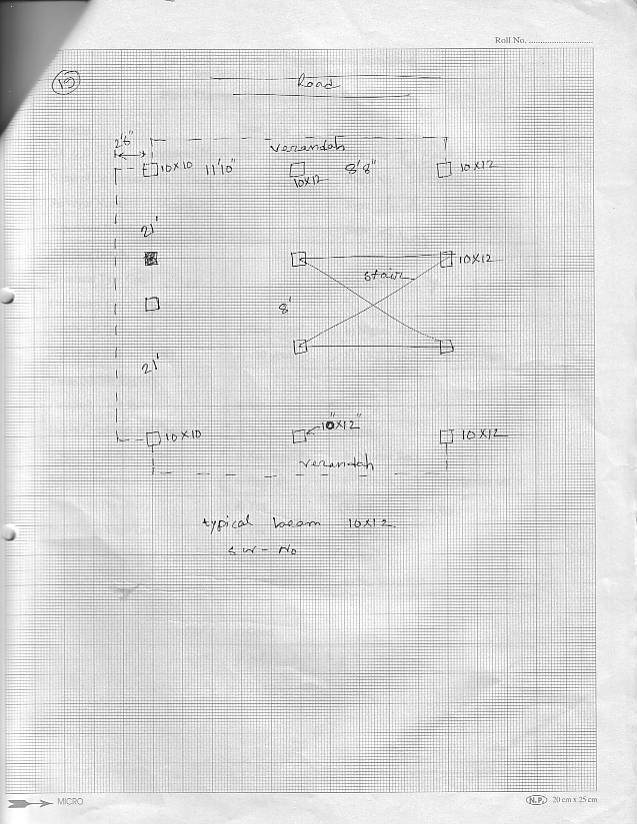 Roll No.
Road
2'6"
verandah
10X10 11'10" 10X12 8'8" 10X12
21'
10X12
stair
8'
21'
10X10 10"X12" 10X12
verandah
typical beam 10X12.
SW - No
MICRO N.P. 20 cm x 25 cm